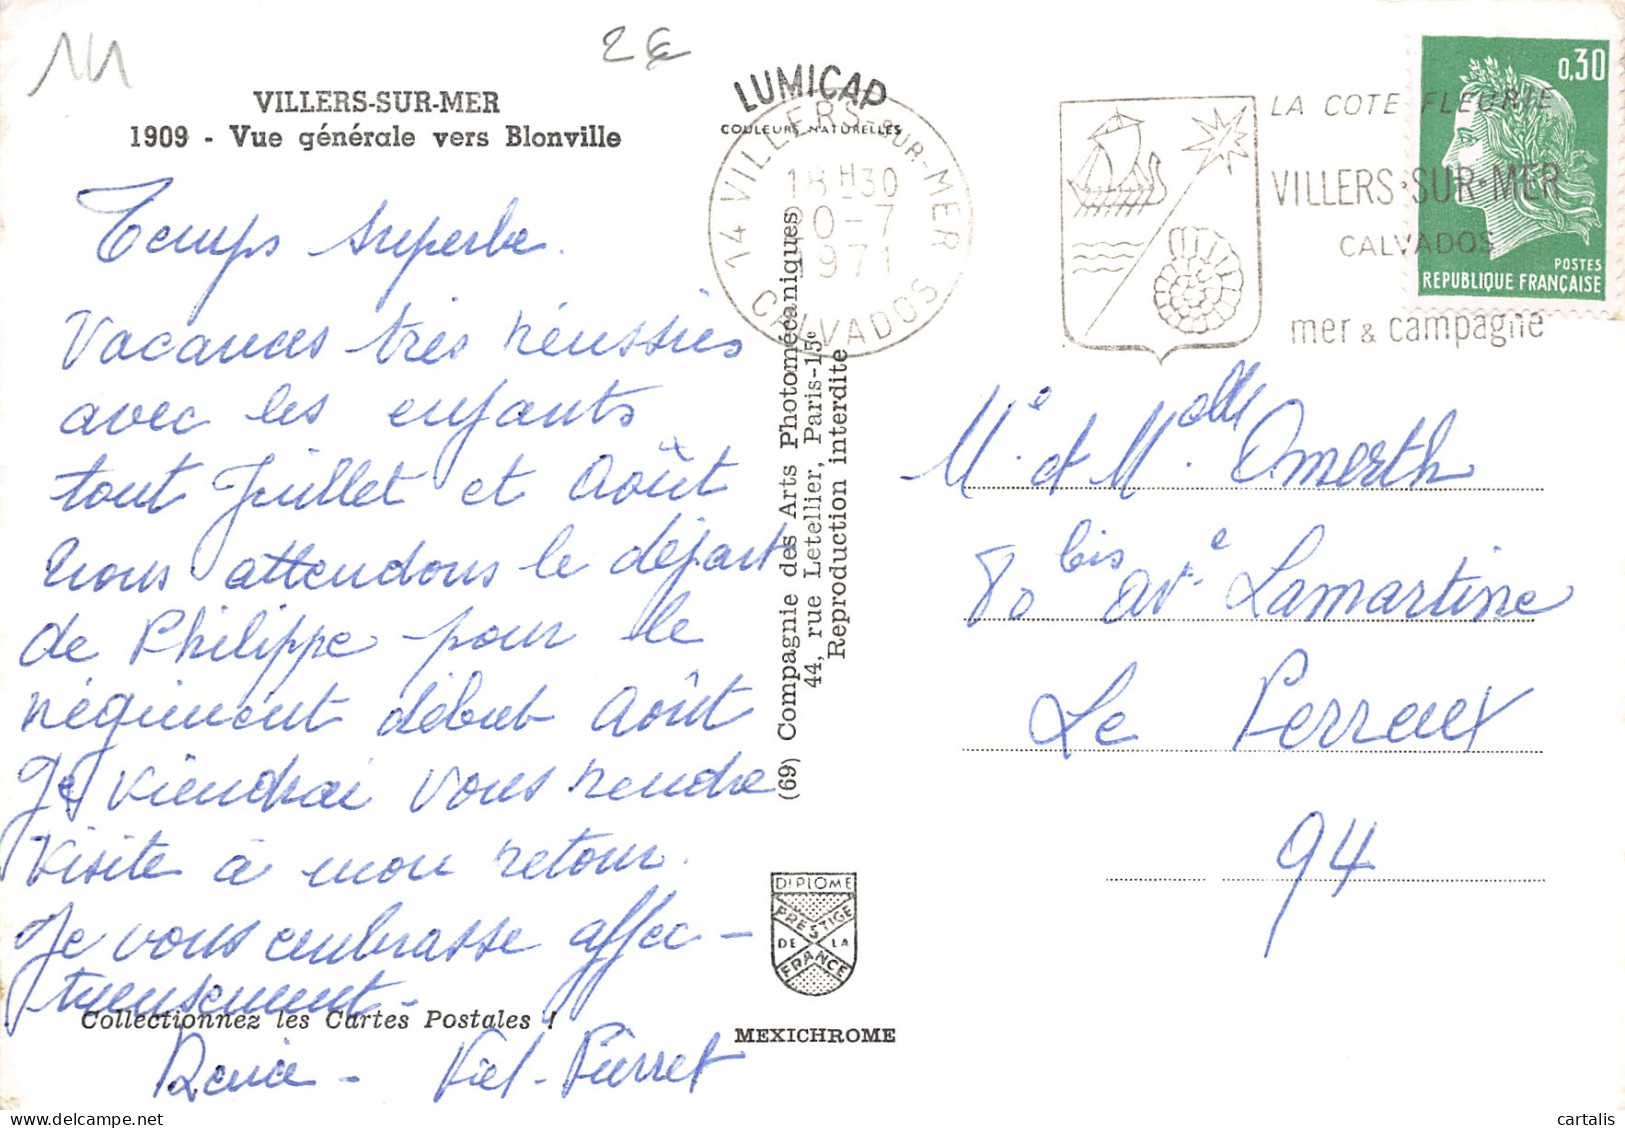 2€
VILLERS-SUR-MER
1909 - Vue générale vers Blonville
Temps superbe.
Vacances très réussies
avec les enfants
tout Juillet et Août
Nous attendons le départ
de Philippe pour le
régiment début Août
Je viendrai vous rendre
visite à mon retour.
Je vous embrasse affec-
tueusement-
Collectionnez les Cartes Postales !
Viel-Pierret
LUMICAP
COULEURS NATURELLES
14 VILLERS-SUR-MER
18H30
0-7
1971
CALVADOS
(69) Compagnie des Arts Photomécaniques
44, rue Letellier, Paris-15e
Reproduction interdite
DIPLOME
PRESTIGE
DE LA
FRANCE
MEXICHROME
LA COTE FLEURIE
VILLERS-SUR-MER
CALVADOS
mer & campagne
0,30
POSTES
REPUBLIQUE FRANÇAISE
Me et Melle Omerth
80 bis ave Lamartine
Le Perreux
94
cartalis